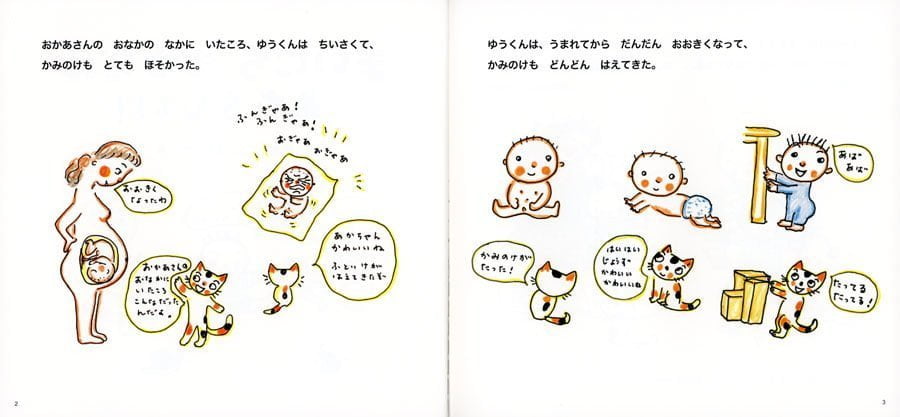 おかあさんの　おなかの　なかに　いたころ、ゆうくんは　ちいさくて、
かみのけも　とても　ほそかった。
ふんぎゃあ！
ふんぎゃあ！
おぎゃあ おぎゃあ
おおきく
なったわ
おかあさんの
おなかに
いたころ
こんなだった
んだよ。
あかちゃん
かわいいね
ふといけが
はえてきたぞ
2
ゆうくんは、うまれてから　だんだん　おおきくなって、
かみのけも　どんどん　はえてきた。
あば
あばー
かみのけが
たった！
はいはい
じょうず
かわいい
かわいいね
たってる
たってる！
3